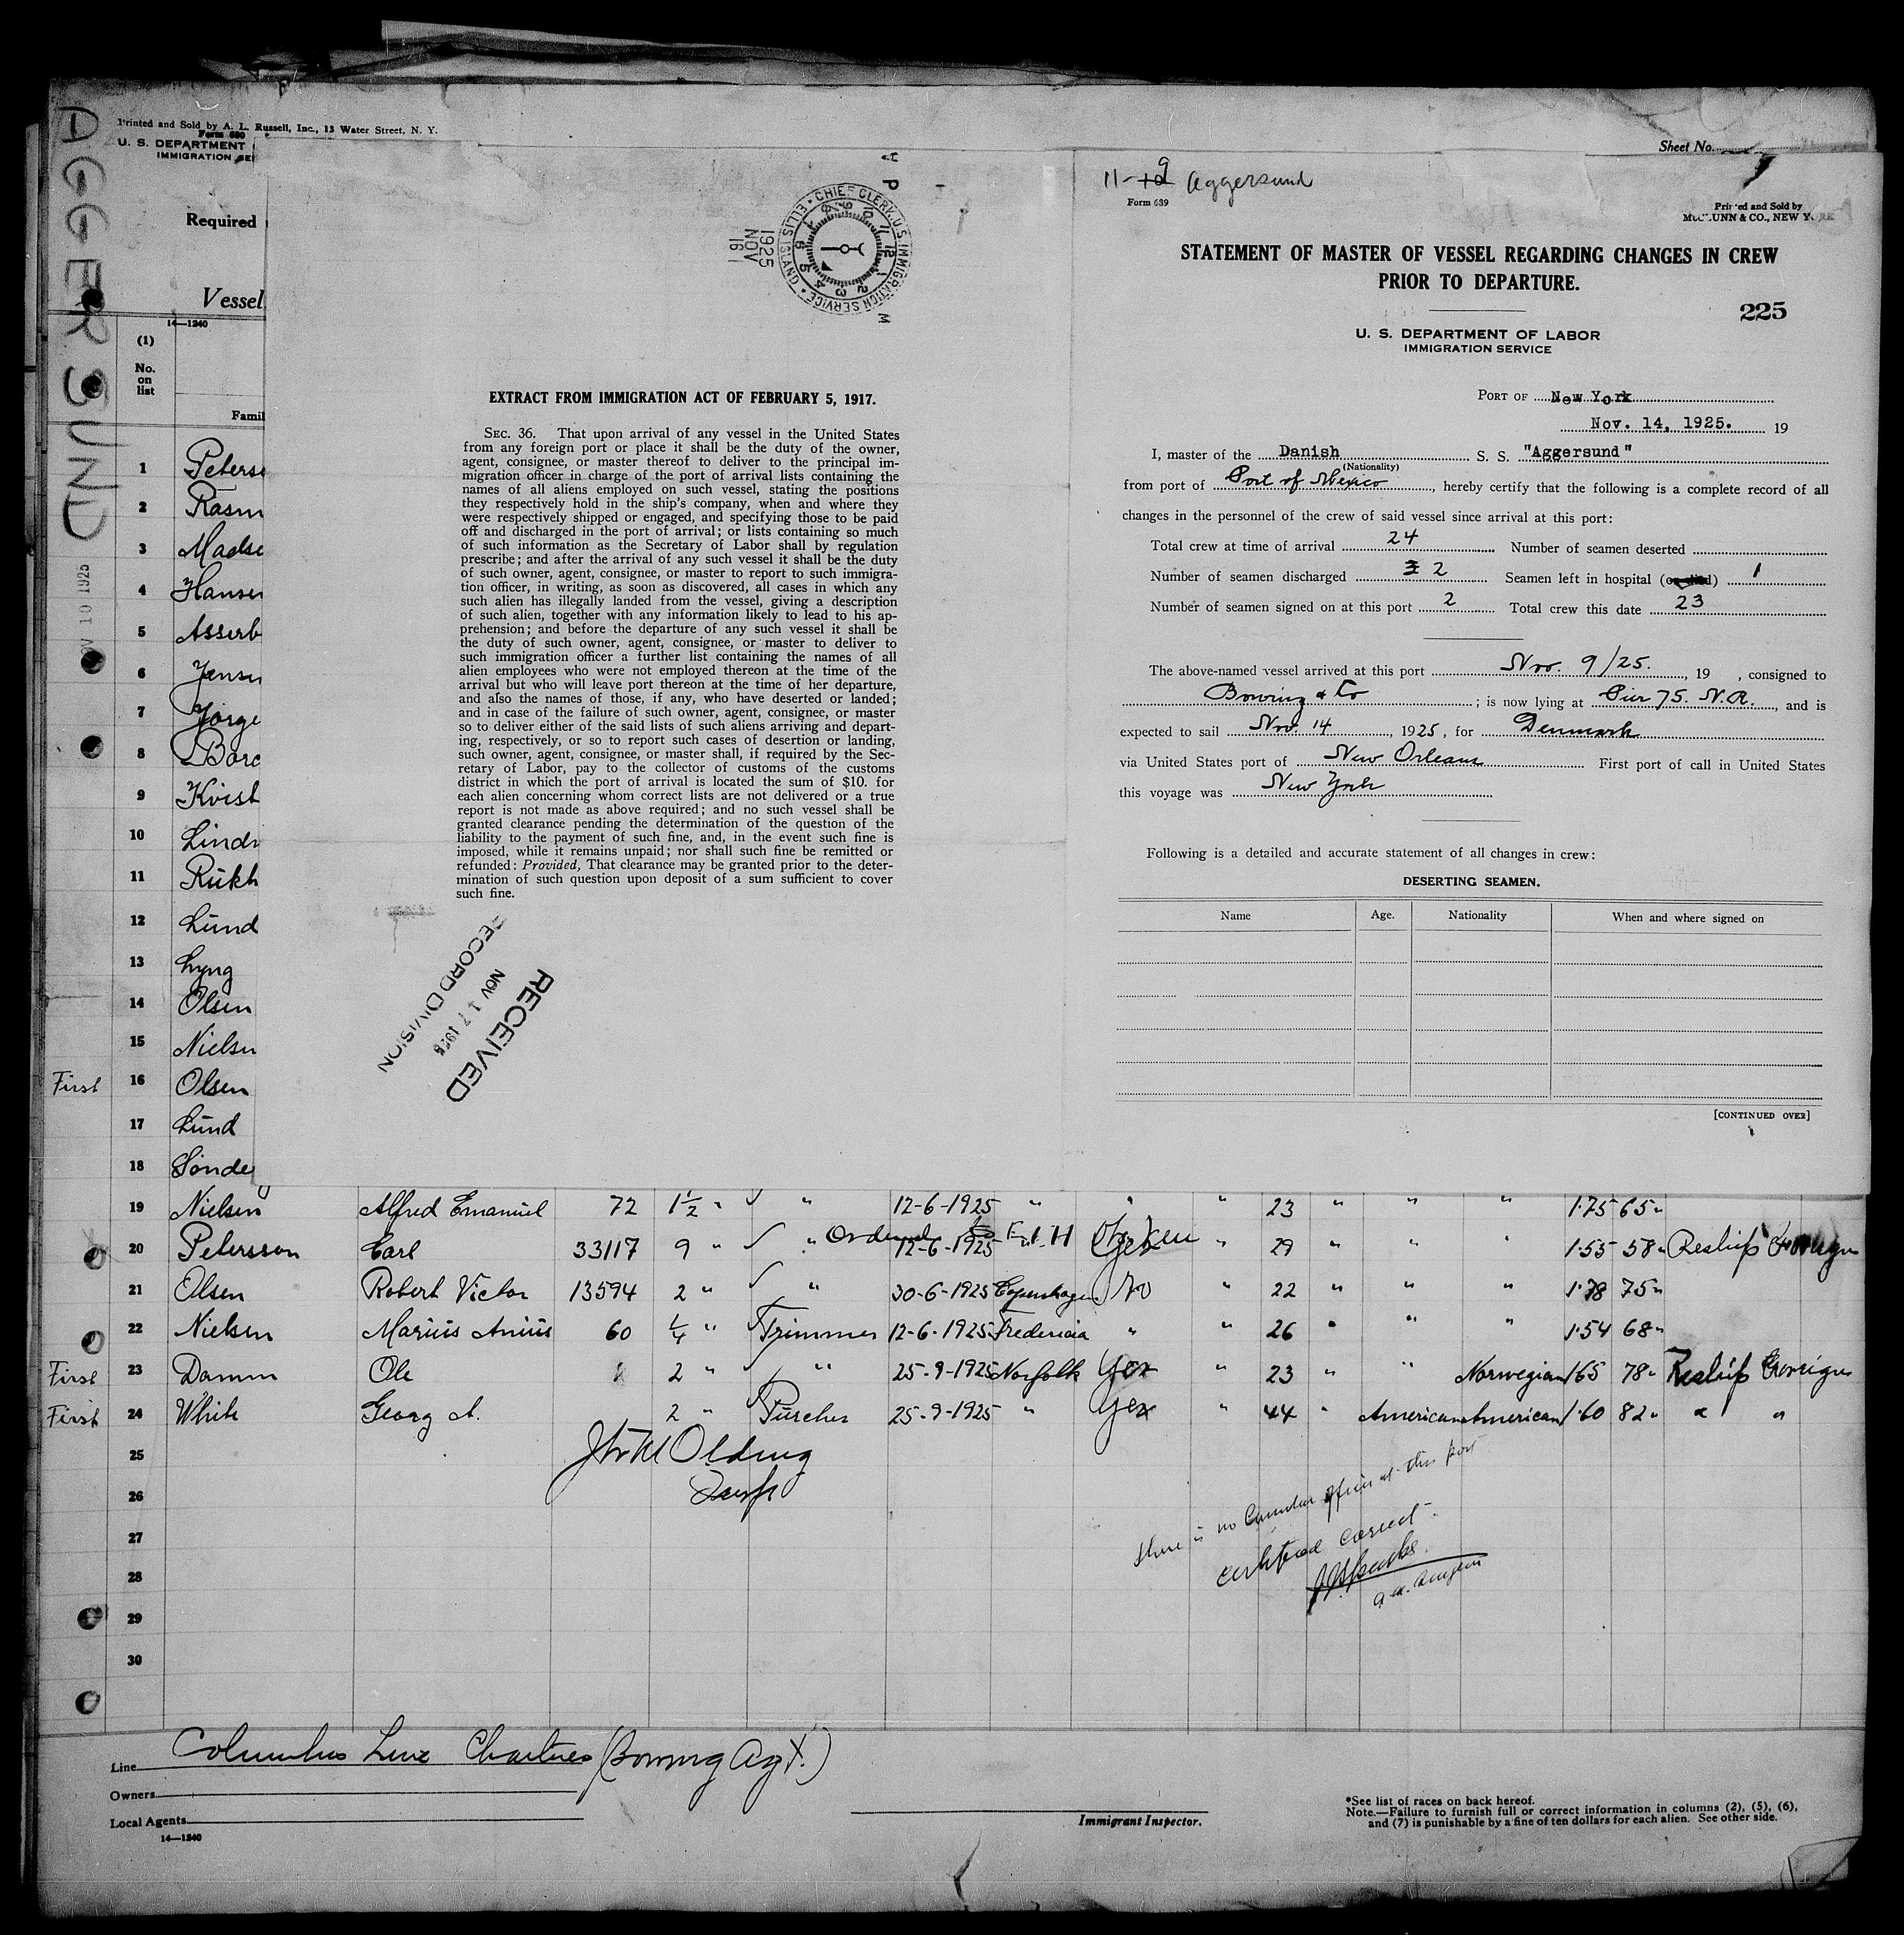 AGGERSUND
NOV 10 1925
Printed and Sold by A. L. Russell, Inc., 13 Water Street, N. Y.
Form 680
U. S. DEPARTMENT
IMMIGRATION SER
Sheet No.
Required
Vessel
14—1240
(1)
No.
on
list
Famil
1 Peterse
2 Rasm
3 Madse
4 Hansen
5 Asserb
6 Jensen
7 Jörge
8 Borc
9 Kvist
10 Lindr
11 Rükh
12 Lund
13 Lyng
14 Olsen
15 Nielsen
First 16 Olsen
17 Lund
18 Sönde
CHIEF CLERK, U.S. IMMIGRATION SERVICE • ELLIS ISLAND •
1925
NOV
16
P M
EXTRACT FROM IMMIGRATION ACT OF FEBRUARY 5, 1917.
SEC. 36. That upon arrival of any vessel in the United States
from any foreign port or place it shall be the duty of the owner,
agent, consignee, or master thereof to deliver to the principal im-
migration officer in charge of the port of arrival lists containing the
names of all aliens employed on such vessel, stating the positions
they respectively hold in the ship's company, when and where they
were respectively shipped or engaged, and specifying those to be paid
off and discharged in the port of arrival; or lists containing so much
of such information as the Secretary of Labor shall by regulation
prescribe; and after the arrival of any such vessel it shall be the duty
of such owner, agent, consignee, or master to report to such immigra-
tion officer, in writing, as soon as discovered, all cases in which any
such alien has illegally landed from the vessel, giving a description
of such alien, together with any information likely to lead to his ap-
prehension; and before the departure of any such vessel it shall be
the duty of such owner, agent, consignee, or master to deliver to
such immigration officer a further list containing the names of all
alien employees who were not employed thereon at the time of the
arrival but who will leave port thereon at the time of her departure,
and also the names of those, if any, who have deserted or landed;
and in case of the failure of such owner, agent, consignee, or master
so to deliver either of the said lists of such aliens arriving and depart-
ing, respectively, or so to report such cases of desertion or landing,
such owner, agent, consignee, or master shall, if required by the Sec-
retary of Labor, pay to the collector of customs of the customs
district in which the port of arrival is located the sum of $10. for
each alien concerning whom correct lists are not delivered or a true
report is not made as above required; and no such vessel shall be
granted clearance pending the determination of the question of the
liability to the payment of such fine, and, in the event such fine is
imposed, while it remains unpaid; nor shall such fine be remitted or
refunded: Provided, That clearance may be granted prior to the deter-
mination of such question upon deposit of a sum sufficient to cover
such fine.
RECEIVED
NOV 17 1925
RECORD DIVISION
11-9 Aggersund
Form 689
Printed and Sold by
UNN & CO., NEW YORK
STATEMENT OF MASTER OF VESSEL REGARDING CHANGES IN CREW
PRIOR TO DEPARTURE.
225
U. S. DEPARTMENT OF LABOR
IMMIGRATION SERVICE
PORT OF New York
Nov. 14, 1925. 19
I, master of the Danish S. S. "Aggersund"
(Nationality)
from port of Port of Mexico, hereby certify that the following is a complete record of all
changes in the personnel of the crew of said vessel since arrival at this port:
Total crew at time of arrival 24 Number of seamen deserted
Number of seamen discharged 2 Seamen left in hospital (or died) 1
Number of seamen signed on at this port 2 Total crew this date 23
The above-named vessel arrived at this port Nov. 9/25., 19 , consigned to
Bowring & Co; is now lying at Pier 75. N.R., and is
expected to sail Nov. 14, 1925, for Denmark
via United States port of New Orleans First port of call in United States
this voyage was New York
Following is a detailed and accurate statement of all changes in crew:
DESERTING SEAMEN.
Name Age. Nationality When and where signed on
[CONTINUED OVER]
19 Nielsen Alfred Emanuel 72 1½ " " 12-6-1925 " " " 23 " " " 1.75 65 "
20 Petersson Carl 33117 9 " " 12-6-1925 Yes " 29 " " " 1.55 58 " Reship Foreign
21 Olsen Robert Victor 13594 2 " " 30-6-1925 Copenhagen No " 22 " " " 1.78 75 "
22 Nielsen Marius Anius 60 ¼ " Trimmer 12-6-1925 Fredericia " " 26 " " " 1.54 68 "
First 23 Damm Ole 2 " " 25-9-1925 Norfolk Yes " 23 " " Norwegian 1.65 78 " Reship Foreign
First 24 White Georg A. 2 " 25-9-1925 " Yes " 44 " American American 1.60 82 " " "
25
26
27
28
29
30
There is no Consular officer at this port
certified correct.
Line Columbus Line Charterers (Bowring Agt.)
Owners
Local Agents
14—1240
Immigrant Inspector.
*See list of races on back hereof.
Note.—Failure to furnish full or correct information in columns (2), (5), (6),
and (7) is punishable by a fine of ten dollars for each alien. See other side.